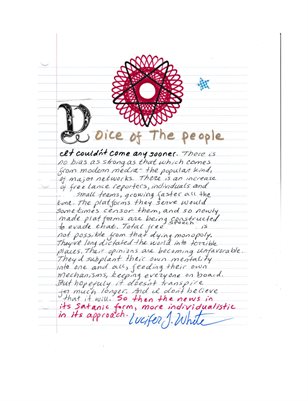 Voice of The people
It couldn't come any sooner. There is
no bias as strong as that which comes
from modern media - the popular kinds
of major networks. There is an increase
of free lance reporters, individuals and
small teams, growing faster all the
time. The platforms they serve would
sometimes censor them, and so newly
made platforms are being constructed
to evade that. Total free speech is
not possible from that dying monopoly.
They've long dictated the world into terrible
places. Their opinions are becoming unfavorable.
They'd supplant their own mentality
into one and all, feeding their own
mechanisms, keeping everyone on board.
But hopefully it doesn't transpire
for much longer. And I don't believe
that it will. So then the news in
its Satanic form, more individualistic
in its approach. Lucifer J. White